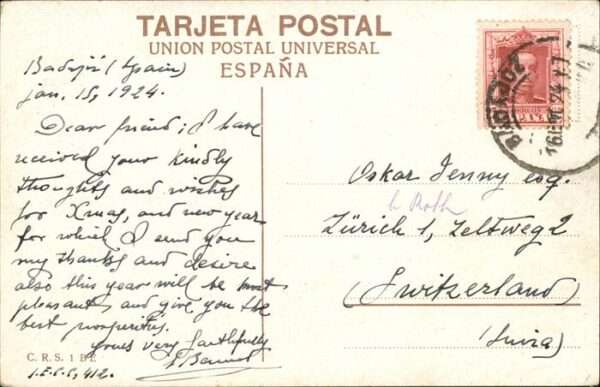 TARJETA POSTAL
UNION POSTAL UNIVERSAL
ESPAÑA
Badajóz (Spain)
jan. 15, 1924.
Dear friend; I have
received your kindly
thoughts and wishes
for Xmas, and new year
for which I send you
my thanks and desire
also this year will be most
pleasant and give you the
best prosperity.
Yours very faithfully
C. R. S. 1 B E
I.E.C.S, 412.
BADAJOZ
Oskar Jenny esq.
b Roth
Zürich 1, Zeltweg 2
(Switzerland)
(Suiza)